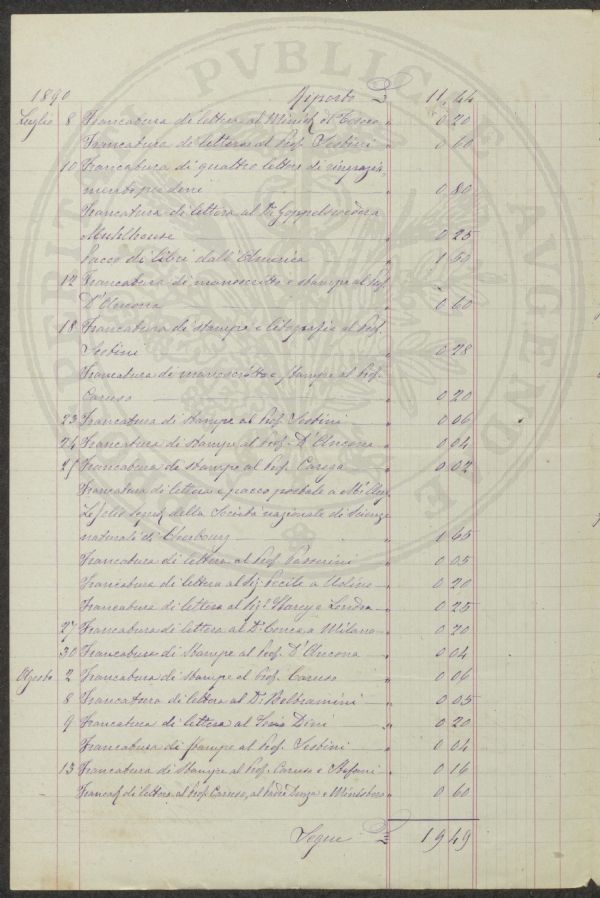 1890 Riporto £ 11,44
Luglio 8 Francatura di lettera al " 0 20
Francatura di lettera al Prof. Sestini " 0 60
10 Francatura di quattro lettere di ringrazia
mento " 0 80
Francatura di lettera al Dr
" 0 25
Pacco di libri dall'America " 1 50
12 Francatura di manoscritto e stampe al Prof.
D'Ancona " 0 60
18 Francatura di stampe e litografie al Prof.
Sestini " 0 28
Francatura di manoscritto e stampe al Prof.
Caruso " 0 20
23 Francatura di stampe al Prof. Sestini " 0 06
24 Francatura di stampe al Prof. D'Ancona " 0 04
25 Francatura di stampe al Prof. Carega " 0 02
Francatura di lettera e pacco postale a
della Società nazionale di Scienze
naturali di Cherbourg " 1 65
Francatura di lettera al Prof. Passerini " 0 05
Francatura di lettera al Sig. Pecile a Udine " 0 20
Francatura di lettera al Sigr a Londra " 0 25
27 Francatura di lettera al Dr a Milano " 0 20
30 Francatura di stampe al Prof. D'Ancona " 0 04
Agosto 2 Francatura di stampe al Prof. Caruso " 0 06
8 Francatura di lettera al Dr Beltramini " 0 05
9 Francatura di lettera al Dini " 0 20
Francatura di stampe al Prof. Sestini " 0 04
13 Francatura di stampe al Prof. Caruso e Stefani " 0 16
Francat. di lettera al Prof. Caruso, al Padre Denza e Ministero " 0 60
Segue £ 19 49